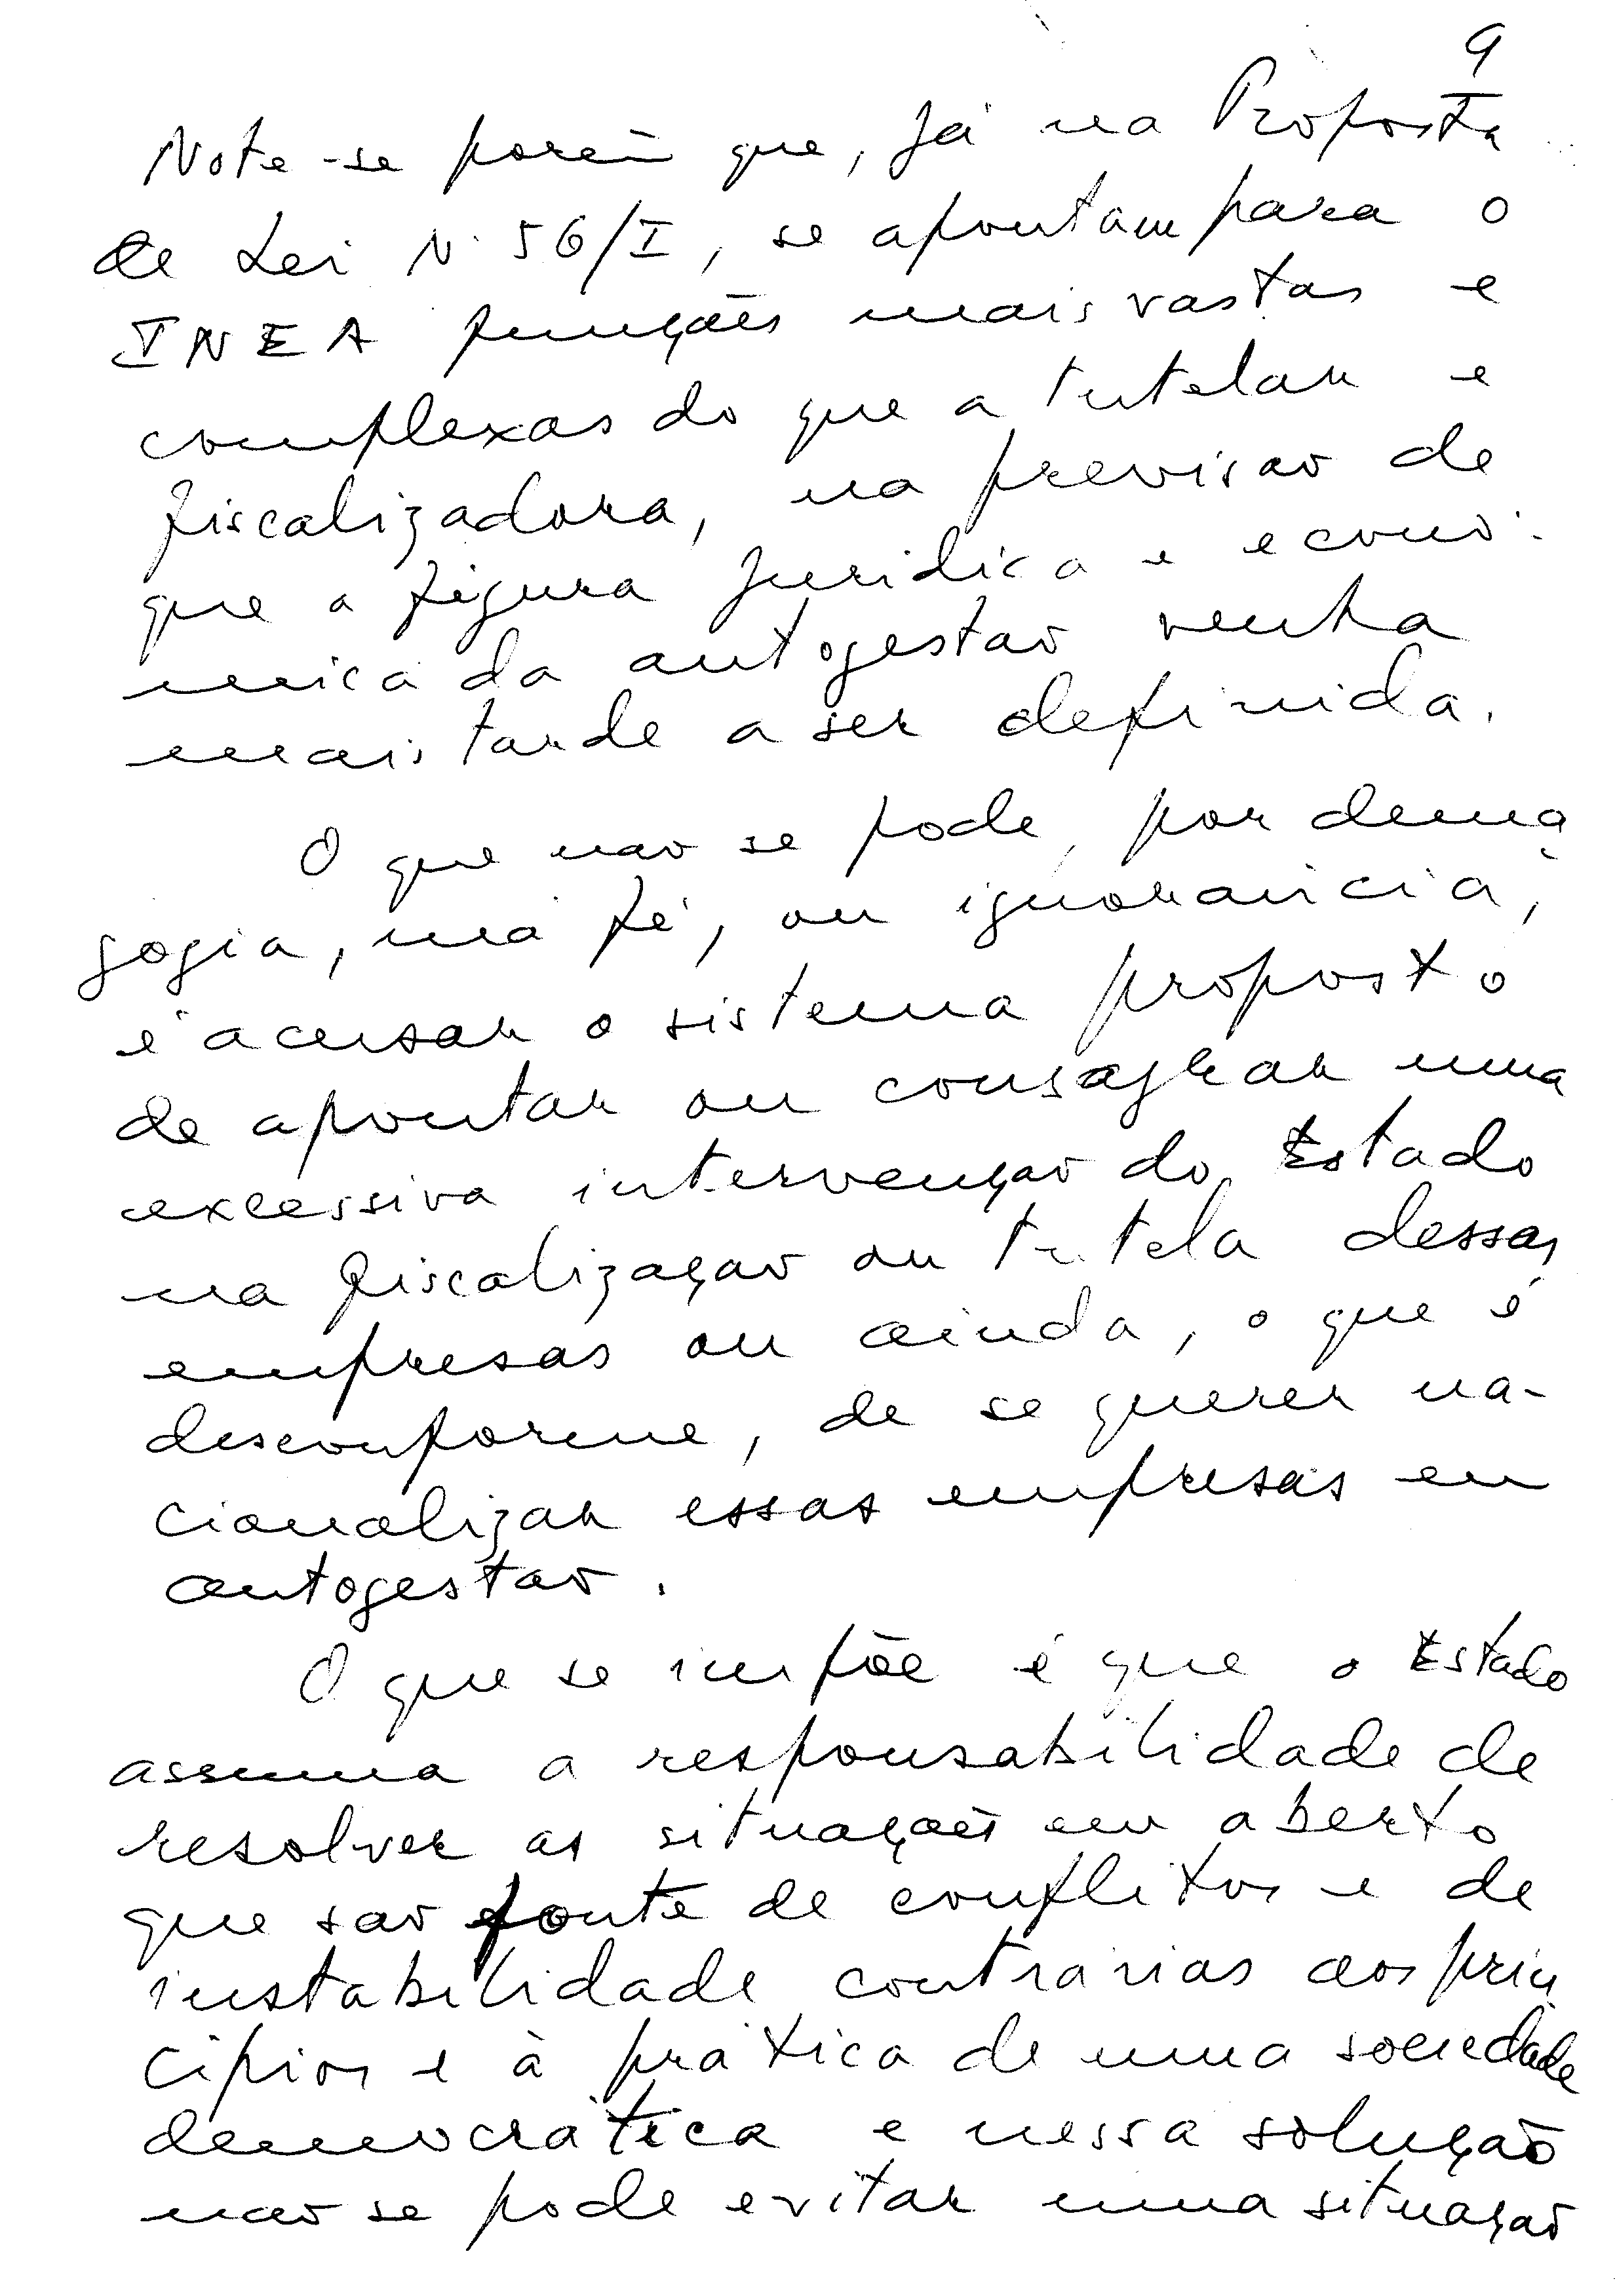 9
Note-se porém que, já na Proposta
de Lei N. 56/I, se apontam para o
INEA funções mais vastas e
complexas do que a tutelar e
fiscalizadora, na previsão de
que a figura jurídica e econó-
mica da autogestão venha
mais tarde a ser definida.
O que não se pode, por dema
gogia, má fé, ou ignorância,
é acusar o sistema proposto
de apontar ou consagrar uma
excessiva intervenção do Estado
na fiscalização ou tutela dessas
empresas ou ainda, o que é
desconforme, de se querer na-
cionalizar essas empresas em
autogestão.
O que se impõe é que o Estado
assuma a responsabilidade de
resolver as situações em aberto
que são fonte de conflitos e de
instabilidade contrárias aos prin
cípios e à prática de uma sociedade
democrática e nessa solução
não se pode evitar uma situação